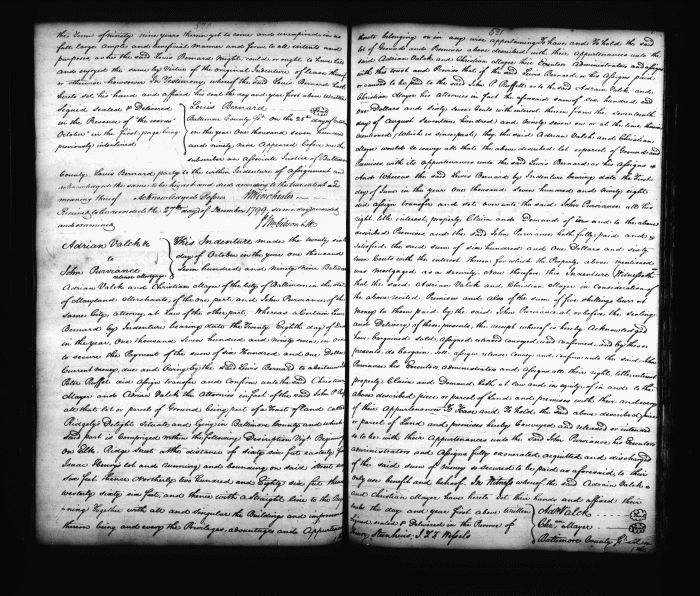 520
the Term of ninety nine years therein yet to come and unexpired in as
full large ample and beneficial manner and form to all intents and
purposes as he the said Lewis Bernard might, could, or ought to have held
and enjoyed the same by Virtue of the original Indenture of lease thereof
or otherwise howsoever. In Testimony whereof the said Lewis Bernard hath
hereto set his hand and affixed his seal the day and year first above written
Signed Sealed & Delivered
in the Presence of "the words
October" in the first page being
previously interlined
Lewis Bernard
Baltimore County Sct. On the 25th day of October
in the year One thousand seven hundred
and ninety nine Appeared before me the
subscriber an associate Justice of Baltimore
County Lewis Bernard party to the within Indenture of assignment and
acknowledged the same to be his act and deed according to the true intent and
meaning thereof Acknowledged Before
Received to be recorded the 27th day of November 1799, same day recorded
and examined
Adrian Valck &c
to
John Purviance
This Indenture made the twenty sixth
day of October in the year one thousand
Seven hundred and ninety nine Between
Adrian Valck and Christian Mayer of the City of Baltimore in the state
of Maryland Merchants, of the one part, and John Purviance of the
same City, attorney at law of the other part. Whereas a certain Lewis
Bernard by Indenture bearing date the Twenty Eighth day of
in the year, One thousand Seven hundred and Ninety seven, in order
to secure the Payment of the sum of six Hundred and One Dollars
Current money, due and Owing by the said Lewis Bernard to
Peter did assign transfer and Confirm unto the said Christian
Mayer and Adrian Valck the attornies in fact of the said John P
all that lot or parcel of Ground being part of a tract of land called
Ridgely's Delight situate and lying in Baltimore County and which
said part is Comprized within the following Description Viz. Beginning
on Elk Ridge Street at the distance of sixty six feet easterly from
Isaac Henry's lot and running and bounding on said street
six feet thence Northerly two Hundred and Eighty six feet thence
westerly sixty six feet, and thence with a straight line to the Beginning
Together with all and Singular the Buildings and improvements
thereon being and every the Privileges, advantages and Appurtenances
521
thereto belonging or in any wise appertaining To have and To hold the said
lot of Ground and Premises above described with their Appurtenances unto the
said Adrian Valck and Christian Mayer their Executors Administrators and assigns
with this trust and Proviso that if the said Lewis Bernard, or his Assigns paid
or caused to be paid to the said John P or to the said Adrian Valck and
Christian Mayer his Attornies in fact the aforesaid sum of six hundred and
one Dollars and sixty seven Cents with interest thereon from the seventeenth
day of August seventeen hundred and ninety seven on or at the time therein
mentioned (which is since past) they the said Adrian Valck and Christian
Mayer would reconvey all that the above described lot or parcel of Ground and
Premises with its appurtenances unto the said Lewis Bernard or his Assigns &
And Whereas the said Lewis Bernard by Indenture bearing date the First
day of June in the year One thousand Seven hundred and Ninety eight
did assign transfer and set over unto the said John Purviance All his
right, title interest, property, Claim and Demand of in and to the above
described Premises and the said John Purviance hath fully paid and &
satisfied the said sum of six hundred and one Dollars and sixty
seven Cents with the interest thereon for which the Property above mentioned
was mortgaged as a security. Now therefore this Indenture Witnesseth
that the said Adrian Valck and Christian Mayer in consideration of
the above recited Premises and also of the sum of five shillings Current
money to them paid by the said John Purviance at or before the sealing
and Delivery of these presents, the receipt whereof is hereby Acknowledged
have bargained sold, assigned released conveyed and confirmed, and by these
presents, do bargain, sell, assign release convey and confirm unto the said John
Purviance his Executors administrators and Assigns all their right, title, interest
property, Claim and Demand both at law and in equity, of in and to the
above described piece or parcel of Land and premises with their and every
of their Appurtenances To Have and To hold the above described piece
or parcel of Land and premises hereby Conveyed and released or intended
to be with their Appurtenances unto the said John Purviance his Executors
administrators and Assigns fully exonerated acquitted and discharged
of the said sum of money so secured to be paid as aforesaid, to their
only use benefit and behoof. In Witness whereof the said Adrian Valck
and Christian Mayer have hereto set their hands and affixed their
seals the day and year first above written
Signed sealed & Delivered in the Presence of
Henry Steenhuis, J. I. I. Wessels
Ad Valck
Chn Mayer
Baltimore County Sct